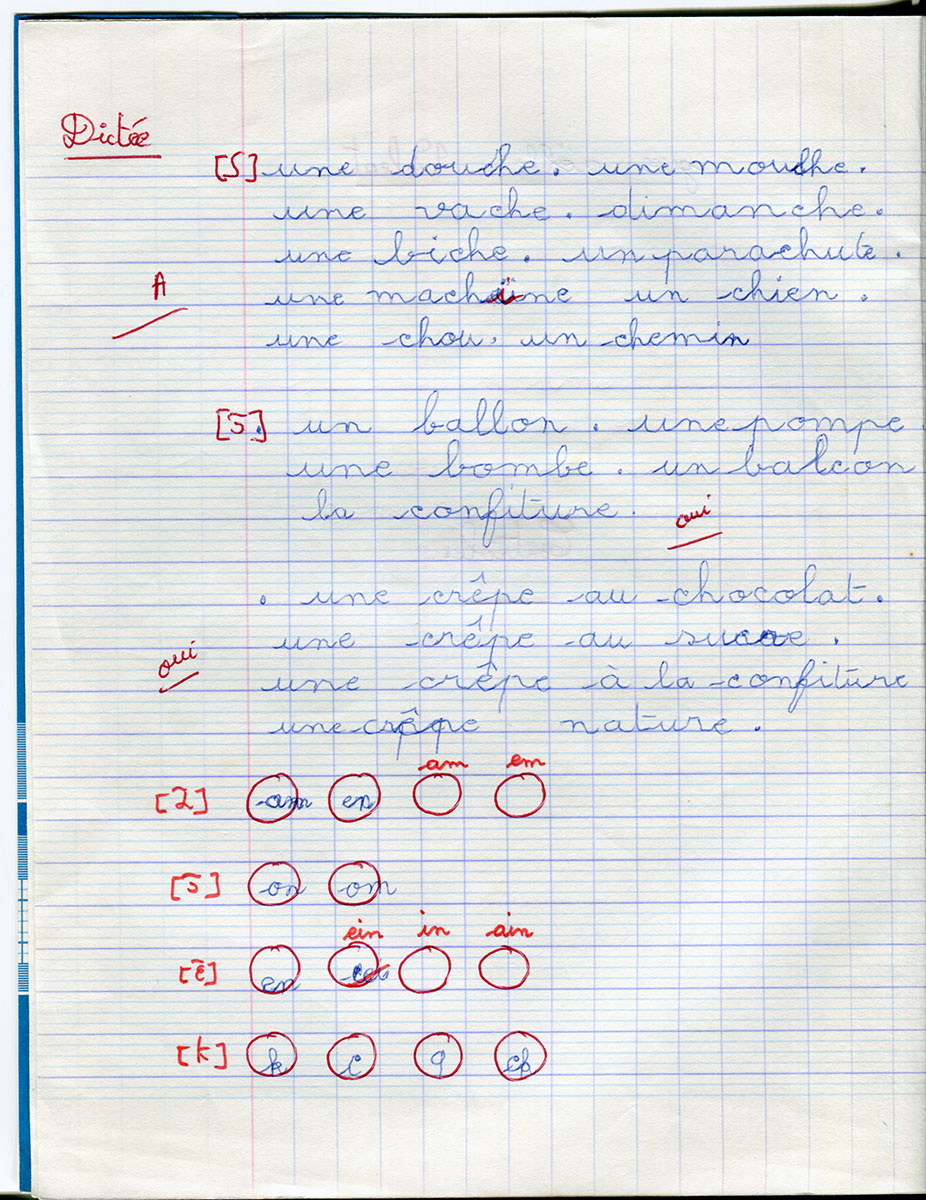 Dictée
[ʃ] une douche. une mouche.
une vache. dimanche.
une biche. un parachute.
A
une machine un chien.
une chou. un chemin
[ɔ̃]. un ballon. une pompe.
une bombe. un balcon
la confiture.
oui
. une crêpe au chocolat.
une crêpe au sucre.
oui
une crêpe à la confiture
une crêpe nature.
am em
[ã] an en
[ɔ̃] on om
ein in ain
[ɛ̃] en
[k] k c q ch